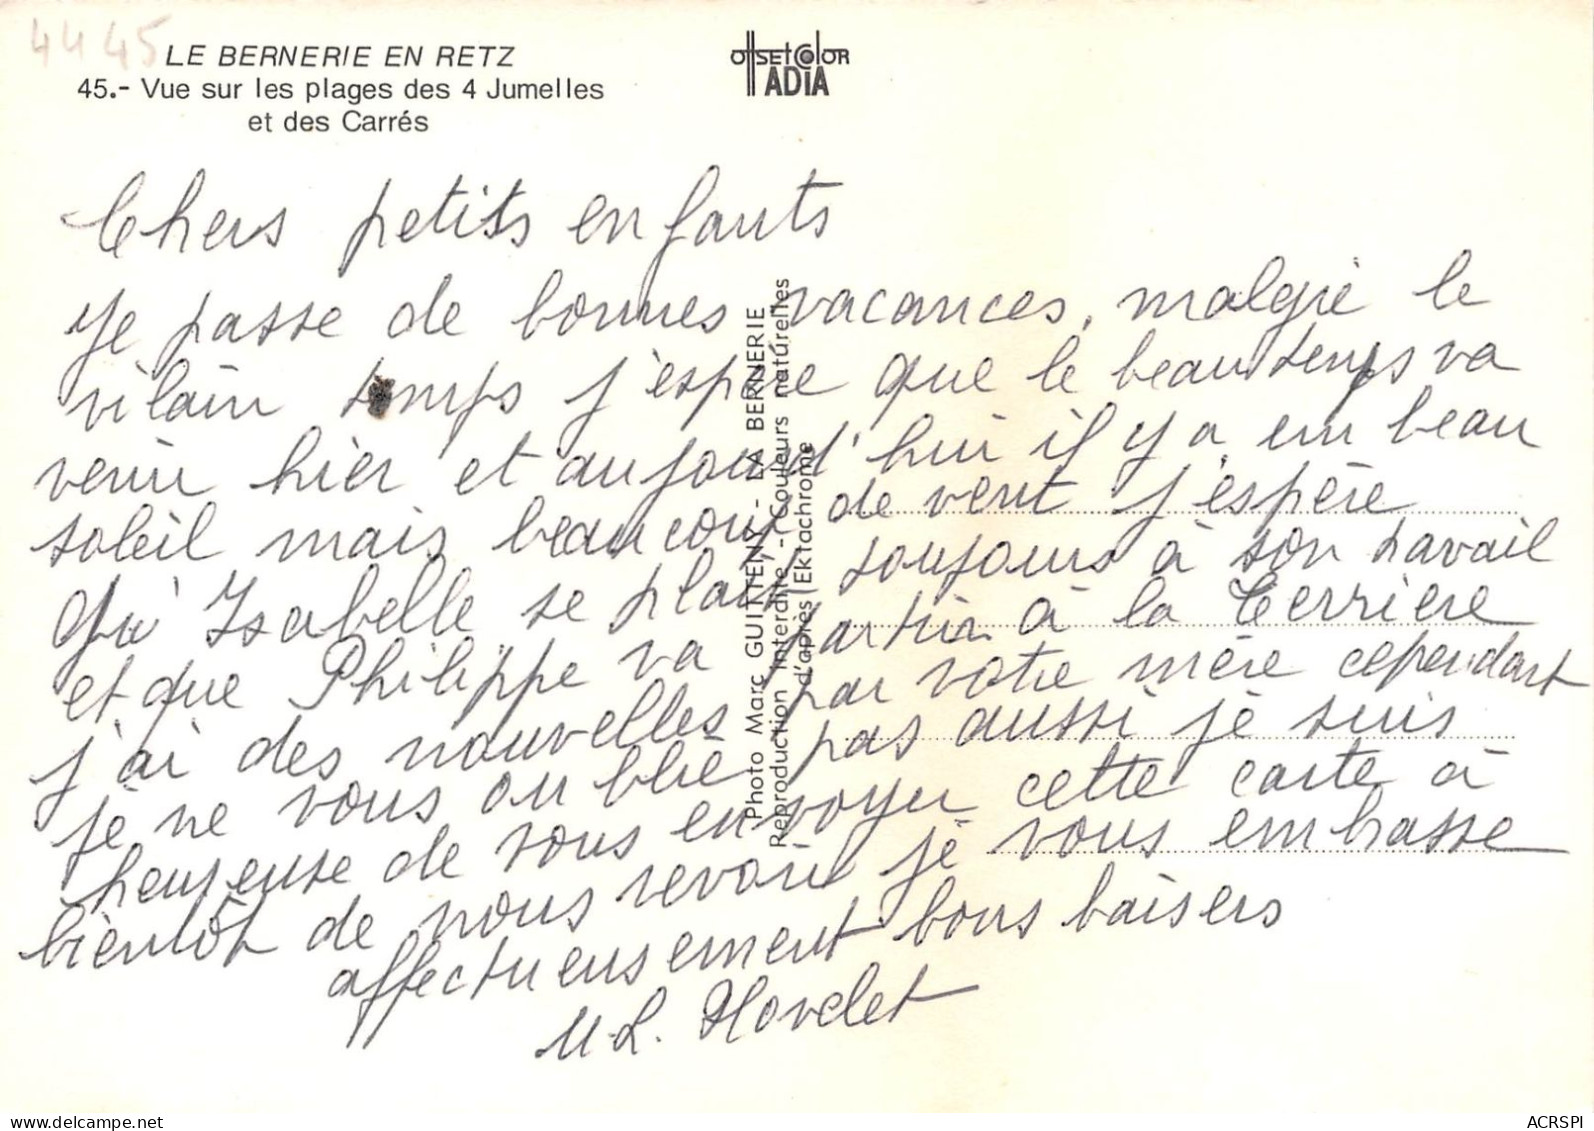 44 45
LE BERNERIE EN RETZ
45.- Vue sur les plages des 4 Jumelles
et des Carrés
OffSEt ColOR
ADIA
Chers petits enfants
je passe de bonnes vacances, malgré le
vilain temps j'espère que le beau temps va
venir hier et aujourd'hui il y a un beau
soleil mais beaucoup de vent j'espère
qu'Isabelle se plait toujours à son travail
et que Philippe va partir à la Terriere
j'ai des nouvelles par votre mère cependant
je ne vous oublie pas aussi je suis
heureuse de vous envoyer cette carte à
bientôt de nous revoir je vous embrasse
affectueusement bons baisers
M.L. Hovelet
Photo Marc GUITTENY - LA BERNERIE
Reproduction interdite - Couleurs naturelles
d'après Ektachrome
www.delcampe.net
ACRSPI